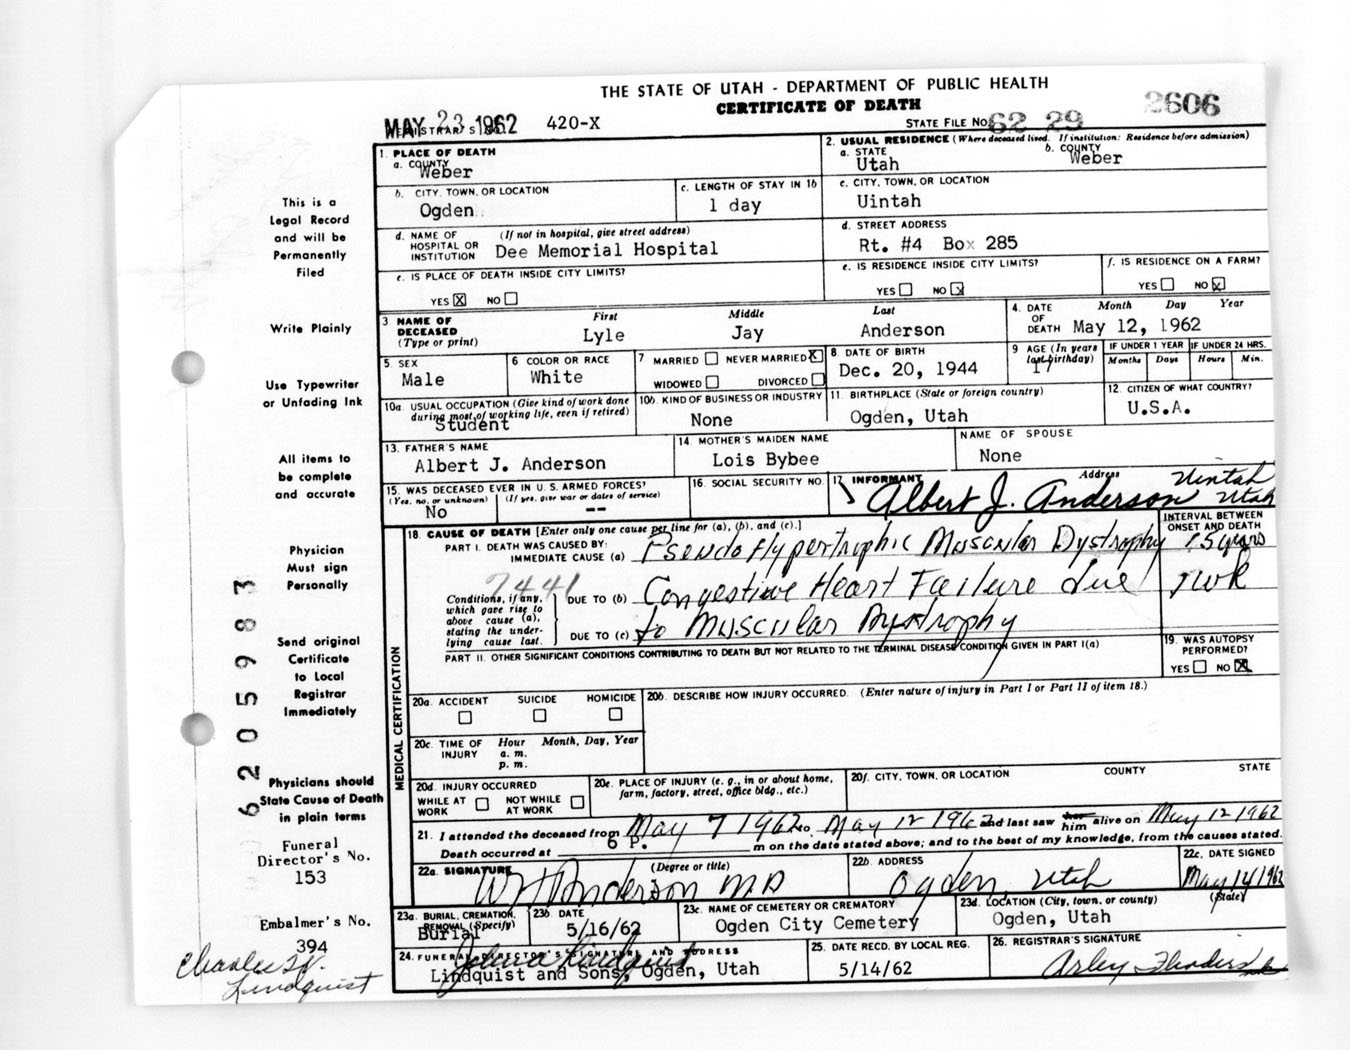 THE STATE OF UTAH - DEPARTMENT OF PUBLIC HEALTH
CERTIFICATE OF DEATH
2606
MAY 23 1962
420-X
STATE FILE No. 62 29
1. PLACE OF DEATH
a. COUNTY
Weber
2. USUAL RESIDENCE (Where deceased lived. If institution: Residence before admission)
a. STATE
Utah
b. COUNTY
Weber
b. CITY, TOWN, OR LOCATION
Ogden
c. LENGTH OF STAY IN 1b
1 day
c. CITY, TOWN, OR LOCATION
Uintah
d. NAME OF HOSPITAL OR INSTITUTION
(If not in hospital, give street address)
Dee Memorial Hospital
d. STREET ADDRESS
Rt. #4 Box 285
e. IS PLACE OF DEATH INSIDE CITY LIMITS?
YES X NO
e. IS RESIDENCE INSIDE CITY LIMITS?
YES NO X
f. IS RESIDENCE ON A FARM?
YES NO X
3 NAME OF DECEASED
(Type or print)
First
Lyle
Middle
Jay
Last
Anderson
4. DATE OF DEATH
Month Day Year
May 12, 1962
5. SEX
Male
6 COLOR OR RACE
White
7 MARRIED NEVER MARRIED X
WIDOWED DIVORCED
8 DATE OF BIRTH
Dec. 20, 1944
9 AGE (In years last birthday)
17
IF UNDER 1 YEAR
Months Days
IF UNDER 24 HRS.
Hours Min.
10a. USUAL OCCUPATION (Give kind of work done during most of working life, even if retired)
Student
10b. KIND OF BUSINESS OR INDUSTRY
None
11. BIRTHPLACE (State or foreign country)
Ogden, Utah
12. CITIZEN OF WHAT COUNTRY?
U.S.A.
13. FATHER'S NAME
Albert J. Anderson
14. MOTHER'S MAIDEN NAME
Lois Bybee
NAME OF SPOUSE
None
15. WAS DECEASED EVER IN U.S. ARMED FORCES?
(Yes, no, or unknown) (If yes, give war or dates of service)
No --
16. SOCIAL SECURITY NO.
17. INFORMANT Address
Albert J. Anderson Uintah Utah
18. CAUSE OF DEATH [Enter only one cause per line for (a), (b), and (c).]
INTERVAL BETWEEN ONSET AND DEATH
PART I. DEATH WAS CAUSED BY:
IMMEDIATE CAUSE (a) Pseudo Hypertrophic Muscular Dystrophy 15 years
7441
Conditions, if any, which gave rise to above cause (a), stating the under-lying cause last.
DUE TO (b) Congestive Heart Failure due 1 wk
DUE TO (c) to Muscular Dystrophy
PART II. OTHER SIGNIFICANT CONDITIONS CONTRIBUTING TO DEATH BUT NOT RELATED TO THE TERMINAL DISEASE CONDITION GIVEN IN PART I(a)
19. WAS AUTOPSY PERFORMED?
YES NO X
MEDICAL CERTIFICATION
20a. ACCIDENT SUICIDE HOMICIDE
20b. DESCRIBE HOW INJURY OCCURRED. (Enter nature of injury in Part I or Part II of item 18.)
20c. TIME OF INJURY
Hour Month, Day, Year
a. m.
p. m.
20d. INJURY OCCURRED
WHILE AT WORK NOT WHILE AT WORK
20e. PLACE OF INJURY (e. g., in or about home, farm, factory, street, office bldg., etc.)
20f. CITY, TOWN, OR LOCATION COUNTY STATE
21. I attended the deceased from May 7 1962 to May 12 1962 and last saw her him alive on May 12 1962
Death occurred at 6 P. m on the date stated above; and to the best of my knowledge, from the causes stated.
22a. SIGNATURE (Degree or title)
Anderson MD
22b. ADDRESS
Ogden, Utah
22c. DATE SIGNED
May 14 1962
23a. BURIAL, CREMATION, REMOVAL (Specify)
Burial
23b. DATE
5/16/62
23c. NAME OF CEMETERY OR CREMATORY
Ogden City Cemetery
23d. LOCATION (City, town, or county) (State)
Ogden, Utah
24. FUNERAL DIRECTOR'S SIGNATURE AND ADDRESS
Lindquist and Sons, Ogden, Utah
25. DATE RECD. BY LOCAL REG.
5/14/62
26. REGISTRAR'S SIGNATURE
This is a
Legal Record
and will be
Permanently
Filed
Write Plainly
Use Typewriter
or Unfading Ink
All items to
be complete
and accurate
Physician
Must sign
Personally
Send original
Certificate
to Local
Registrar
Immediately
Physicians should
State Cause of Death
in plain terms
Funeral
Director's No.
153
Embalmer's No.
394
Lindquist
62059983